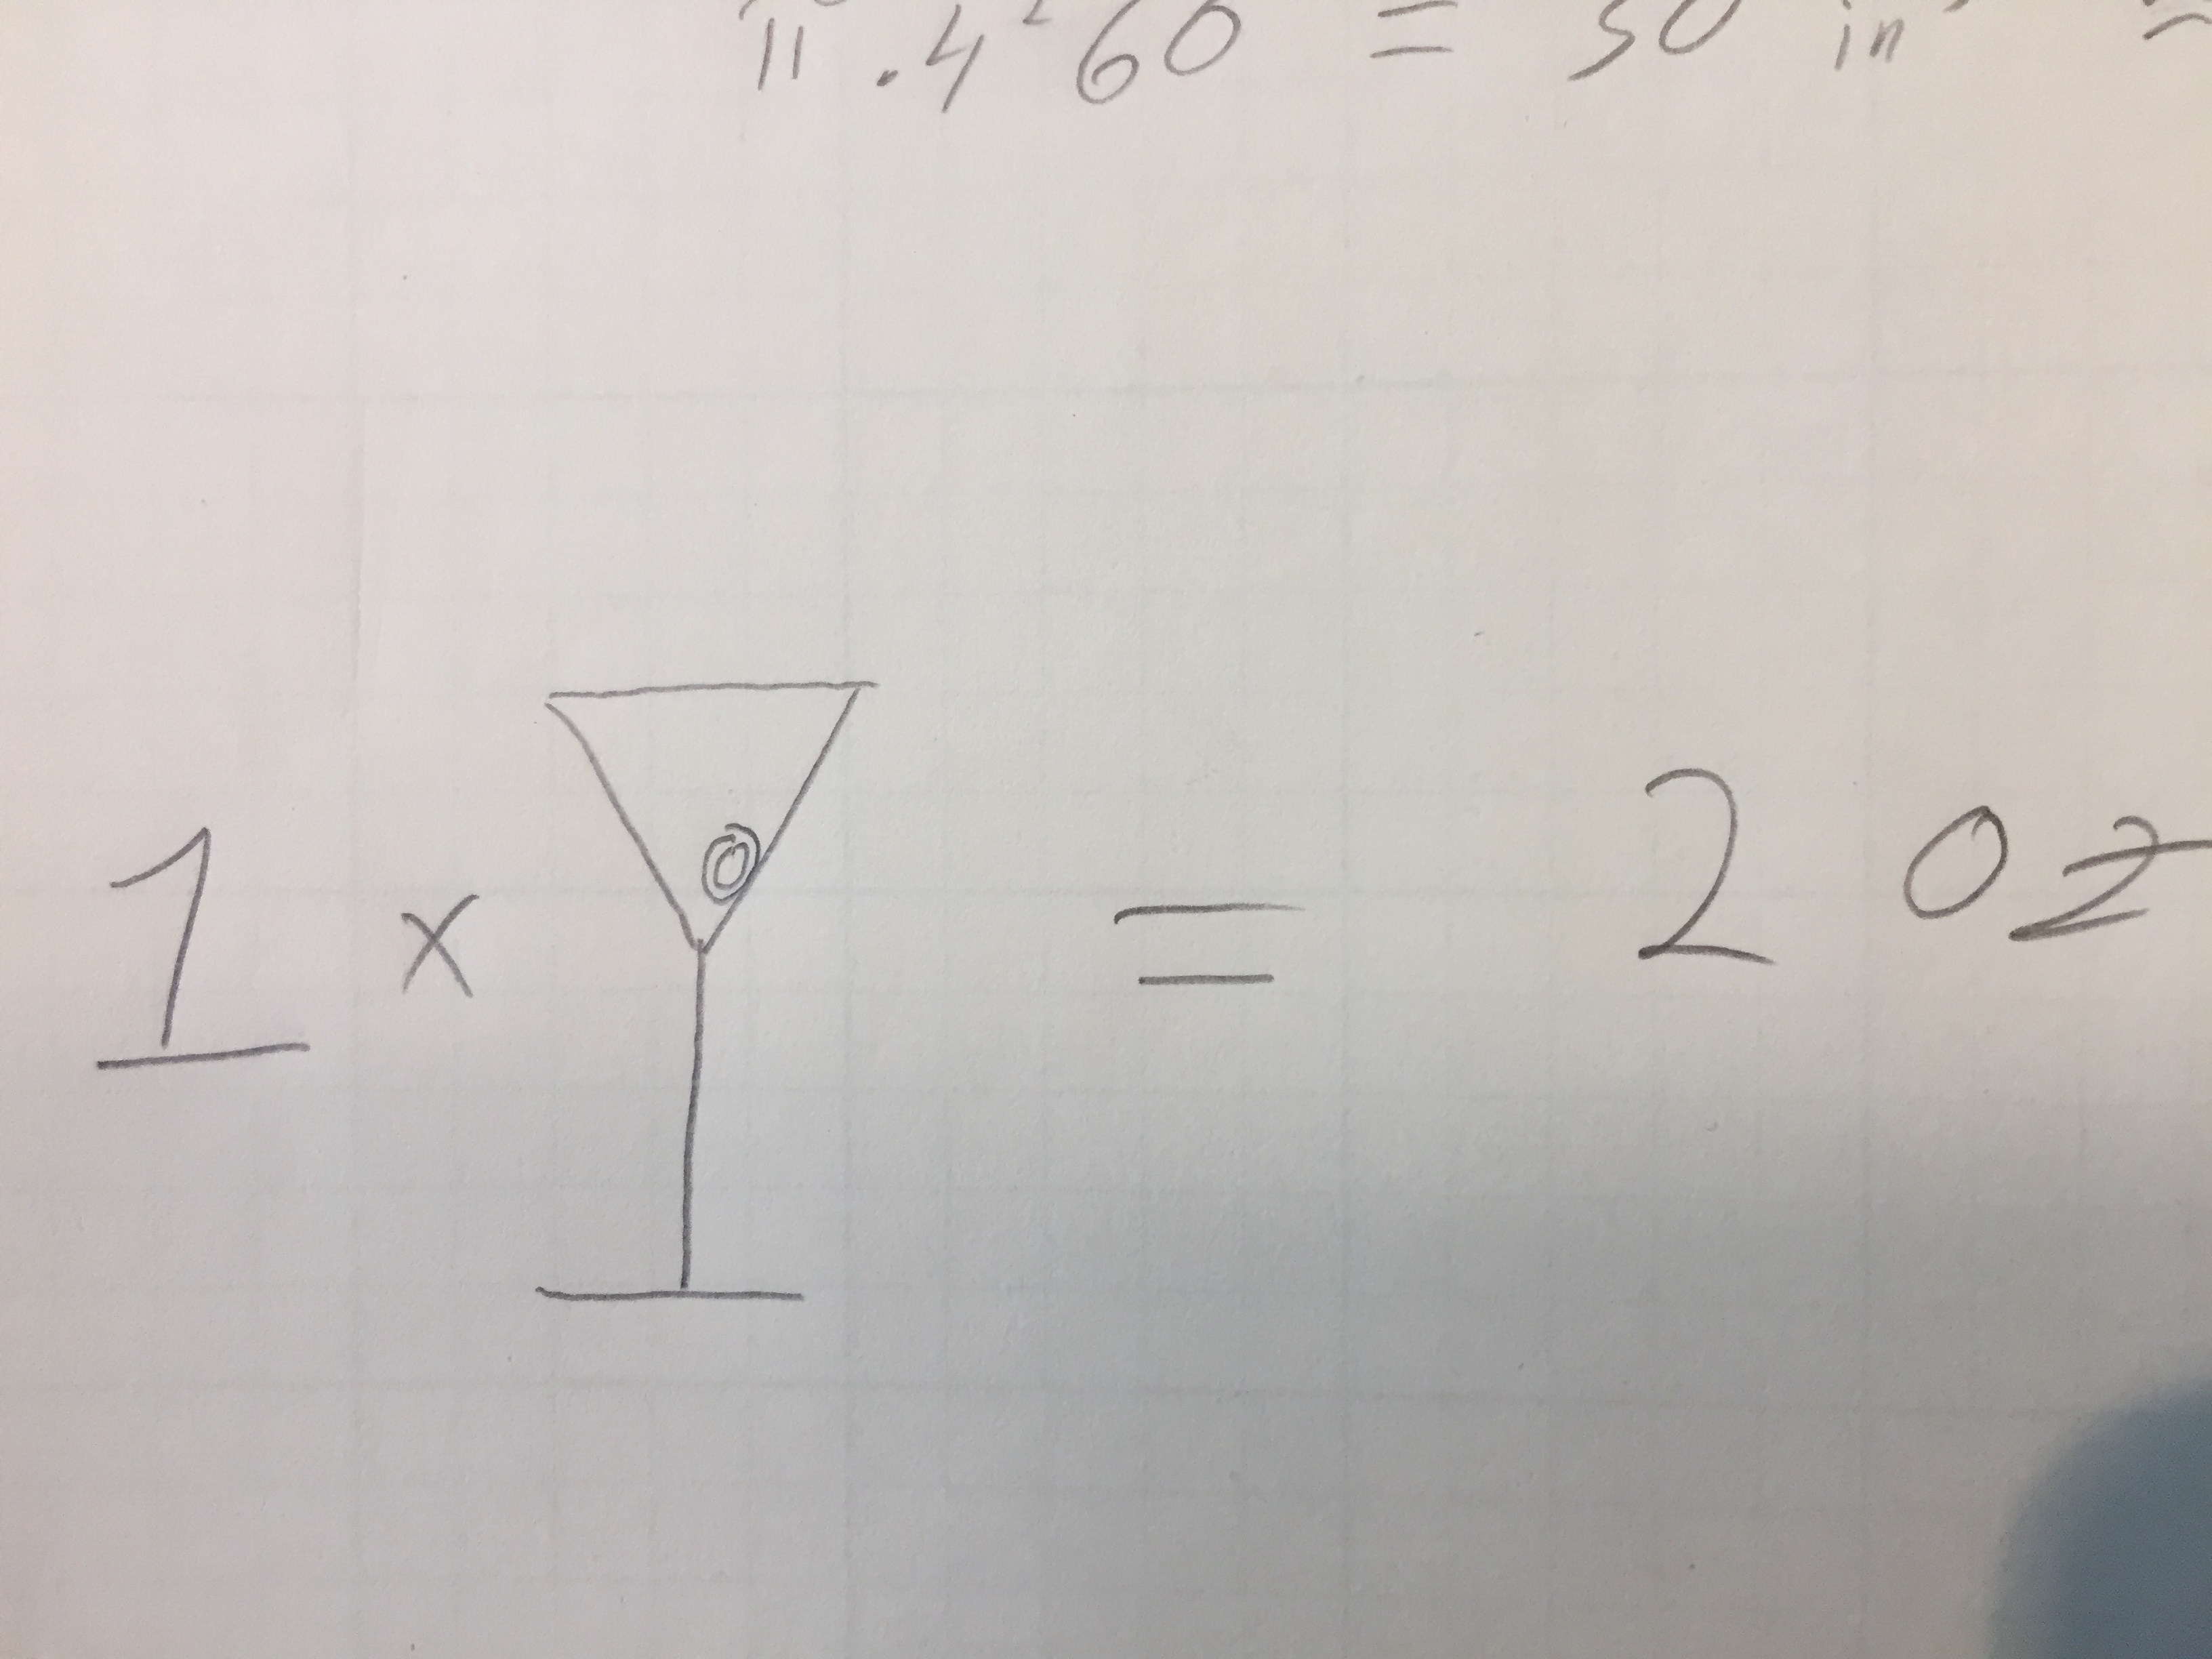 π . 4² 60 = 50 in
1 x = 2 oz